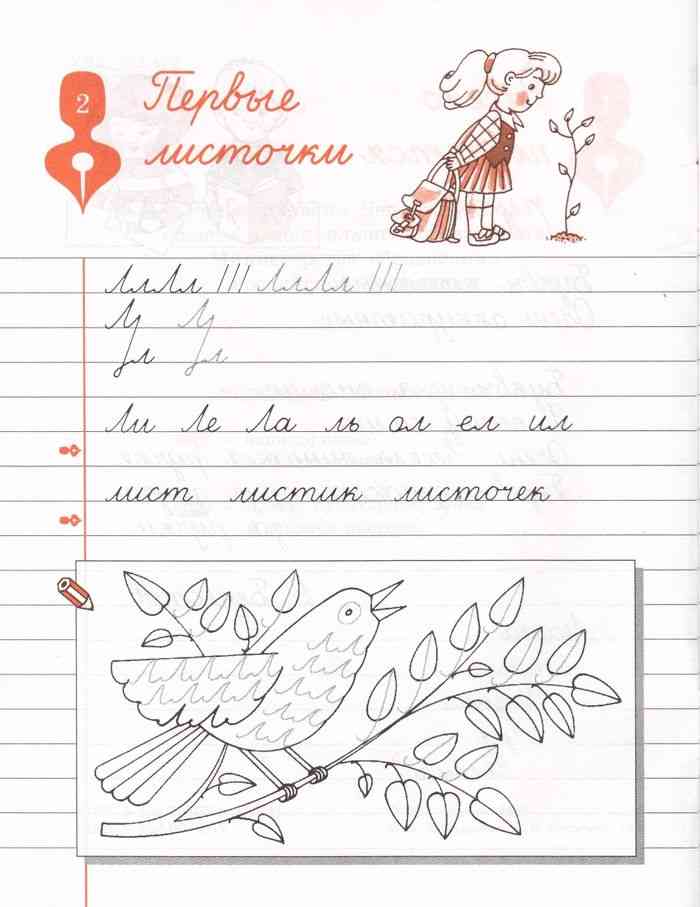 2
Первые
листочки
Ли Ле Ла ль ол ел ил
лист листик листочек